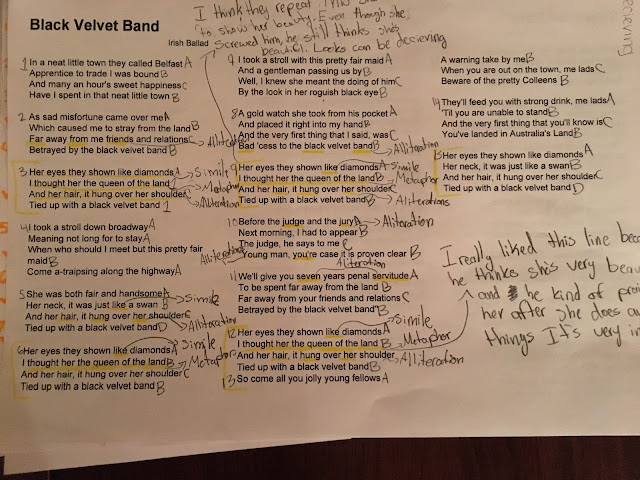 Black Velvet Band
Irish Ballad
I think they repeat This
to show her beauty. Even though she
Screwed him, he still thinks she's
beautiful. Looks can be decieving
decieving
1 In a neat little town they called Belfast A
Apprentice to trade I was bound B
And many an hour's sweet happiness C
Have I spent in that neat little town B
2 As sad misfortune came over me A
Which caused me to stray from the land B
Far away from me friends and relations C
Betrayed by the black velvet band B
3 Her eyes they shown like diamonds → Simile
I thought her the queen of the land → Metaphor
And her hair, it hung over her shoulder → Alliteration
Tied up with a black velvet band
4 I took a stroll down broadway A
Meaning not long for to stay A
When who should I meet but this pretty fair
maid B
Come a-traipsing along the highway A
5 She was both fair and handsome A
Her neck, it was just like a swan B → Simile
And her hair, it hung over her shoulder C
Tied up with a black velvet band D → Alliteration
6 Her eyes they shown like diamonds A → Simile
I thought her the queen of the land B → Metaphor
And her hair, it hung over her shoulder C
Tied up with a black velvet band B
7 I took a stroll with this pretty fair maid A
And a gentleman passing us by B
Well, I knew she meant the doing of him C
By the look in her roguish black eye B
8 A gold watch she took from his pocket A
And placed it right into my hand B
And the very first thing that I said, was C
Bad 'cess to the black velvet band B → Alliteration
9 Her eyes they shown like diamonds A → Simile
I thought her the queen of the land B → Metaphor
And her hair, it hung over her shoulder C
Tied up with a black velvet band B → Alliterations
10 Before the judge and the jury A → Aliteration
Next morning, I had to appear B
The judge, he says to me C
Young man, you're case it is proven clear B
Aliteration
11 We'll give you seven years penal servitude A
To be spent far away from the land B
Far away from your friends and relations C
Betrayed by the black velvet band B
12 Her eyes they shown like diamonds A → Simile
I thought her the queen of the land B → Metaphor
And her hair, it hung over her shoulder
Tied up with a black velvet band B → Alliteration
13 So come all you jolly young fellows A
A warning take by me B
When you are out on the town, me lads C
Beware of the pretty Colleens B
14 They'll feed you with strong drink, me lads A
'Til you are unable to stand B
And the very first thing that you'll know is C
You've landed in Australia's Land B
15 Her eyes they shown like diamonds A
Her neck, it was just like a swan B
And her hair, it hung over her shoulder C
Tied up with a black velvet band D
I really liked this line
he thinks shes very
and he kind of
her after she does
things It's very